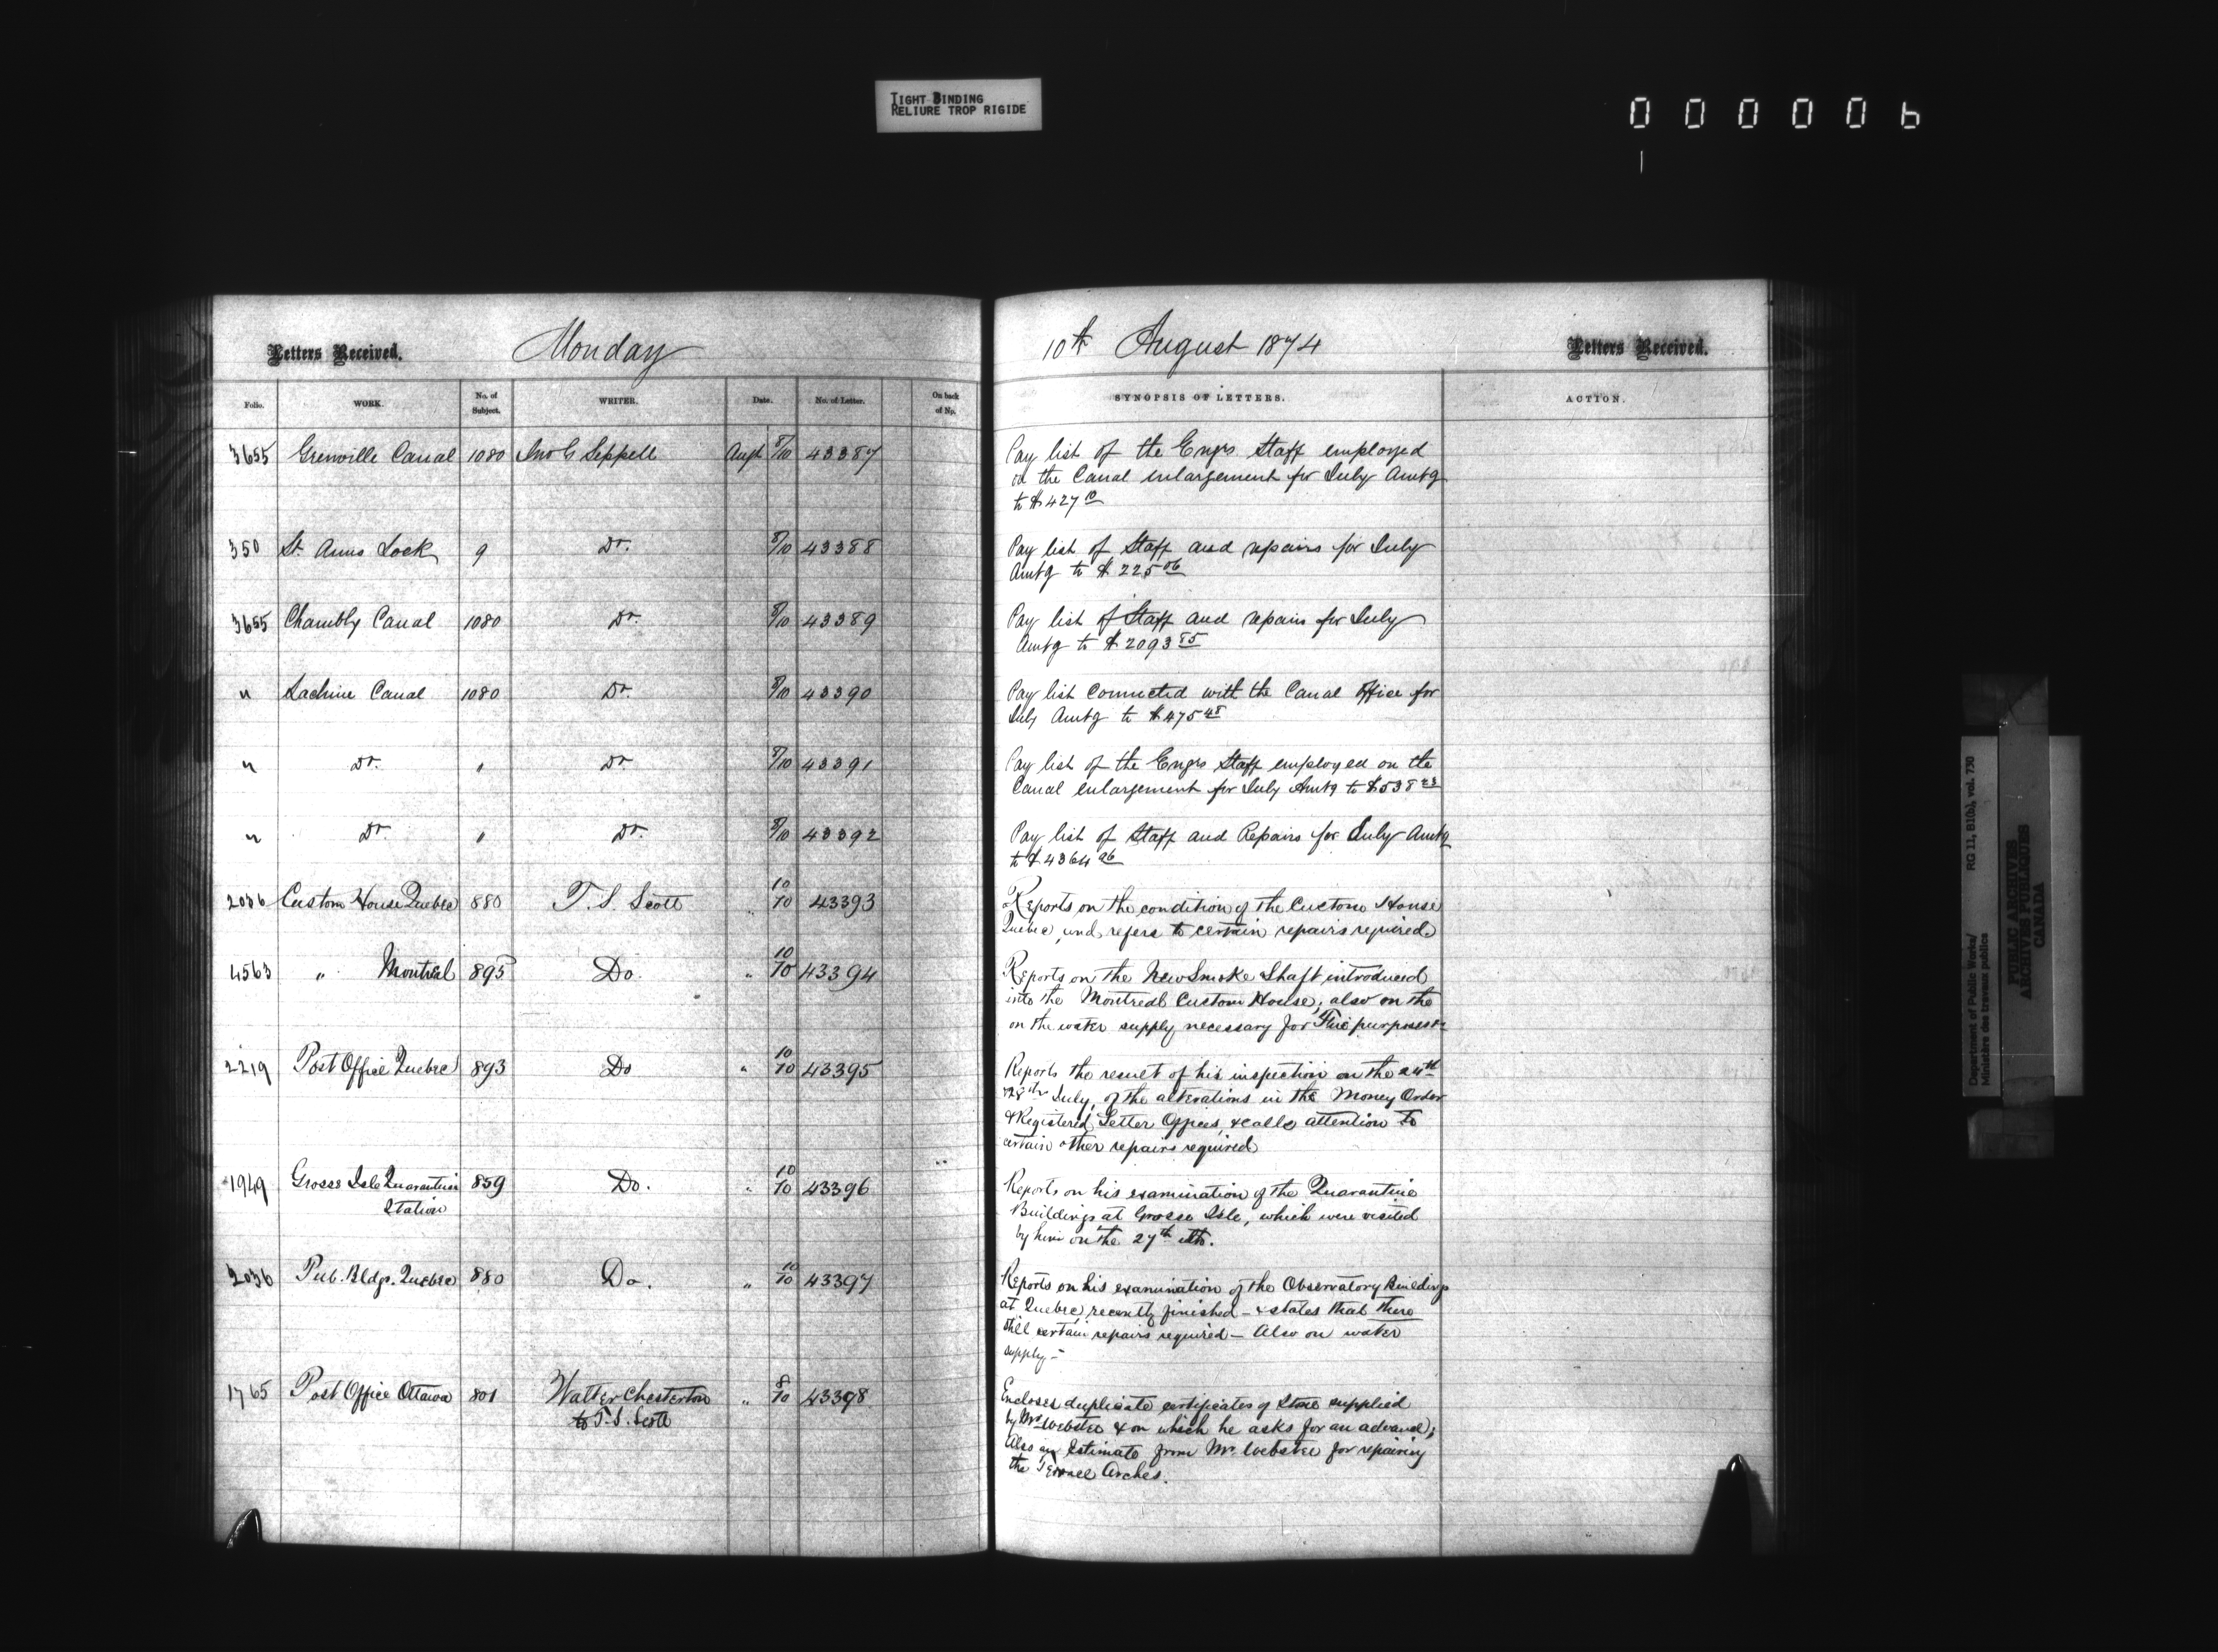 TIGHT BINDING
RELIURE TROP RIGIDE
000006
Letters Received. Monday
Folio. WORK. No. of Subject. WRITER. Date. No. of Letter. On back of Np.
3655 Grenville Canal 1080 Jno G Sippell Augt 8/10 43387
350 St. Anns Lock 9 Do. 8/10 43388
3655 Chambly Canal 1080 Do. 8/10 43389
" Lachine Canal 1080 Do. 8/10 43390
" Do. " Do. 8/10 43391
" Do. " Do. 8/10 43392
2036 Custom House Quebec 880 T. S. Scott " 10/10 43393
4563 " Montreal 895 Do. " 10/10 43394
2219 Post Office Quebec 893 Do " 10/10 43395
1949 Grosse Isle Quarantine 859 Do. " 10/10 43396
Station
2036 Pub. Bldgs. Quebec 880 Do. " 10/10 43397
1765 Post Office Ottawa 801 Walter Chesterton " 8/10 43398
to T. S. Scott
10th August 1874 Letters Received.
SYNOPSIS OF LETTERS. ACTION.
Pay list of the Engrs Staff employed
on the Canal enlargement for July Amtg
to $427 10
Pay list of Staff and repairs for July
Amtg to $225 06
Pay list of Staff and repairs for July
Amtg to $2093 85
Pay list connected with the Canal Office for
July Amtg to $475 48
Pay list of the Engrs Staff employed on the
Canal enlargement for July Amtg to $538
Pay list of Staff and Repairs for July Amtg
to $4364 96
Reports on the condition of the Custom House
Quebec, and refers to certain repairs required
Reports on the New Smoke Shaft introduced
into the Montreal Custom House; also on the
on the water supply necessary for Fire purposes
Reports the result of his inspection on the 24th
28th July, of the alterations in the Money Order
& Registered Letter Offices, & calls attention to
certain other repairs required
Reports on his examination of the Quarantine
Buildings at Grosse Isle, which were visited
by him on the 27th ulto.
Reports on his examination of the Observatory Buildings
at Quebec, recently finished - & states that there
still certain repairs required - Also on water
supply -
Encloses duplicate certificates of Stone supplied
by Mr Webster & on which he asks for an advance;
Also an Estimate from Mr. Webster for repairing
the Terrace Arches.
Department of Public Works/ RG 11, B1(b), vol. 730
Ministère des travaux publics
PUBLIC ARCHIVES
ARCHIVES PUBLIQUES
CANADA